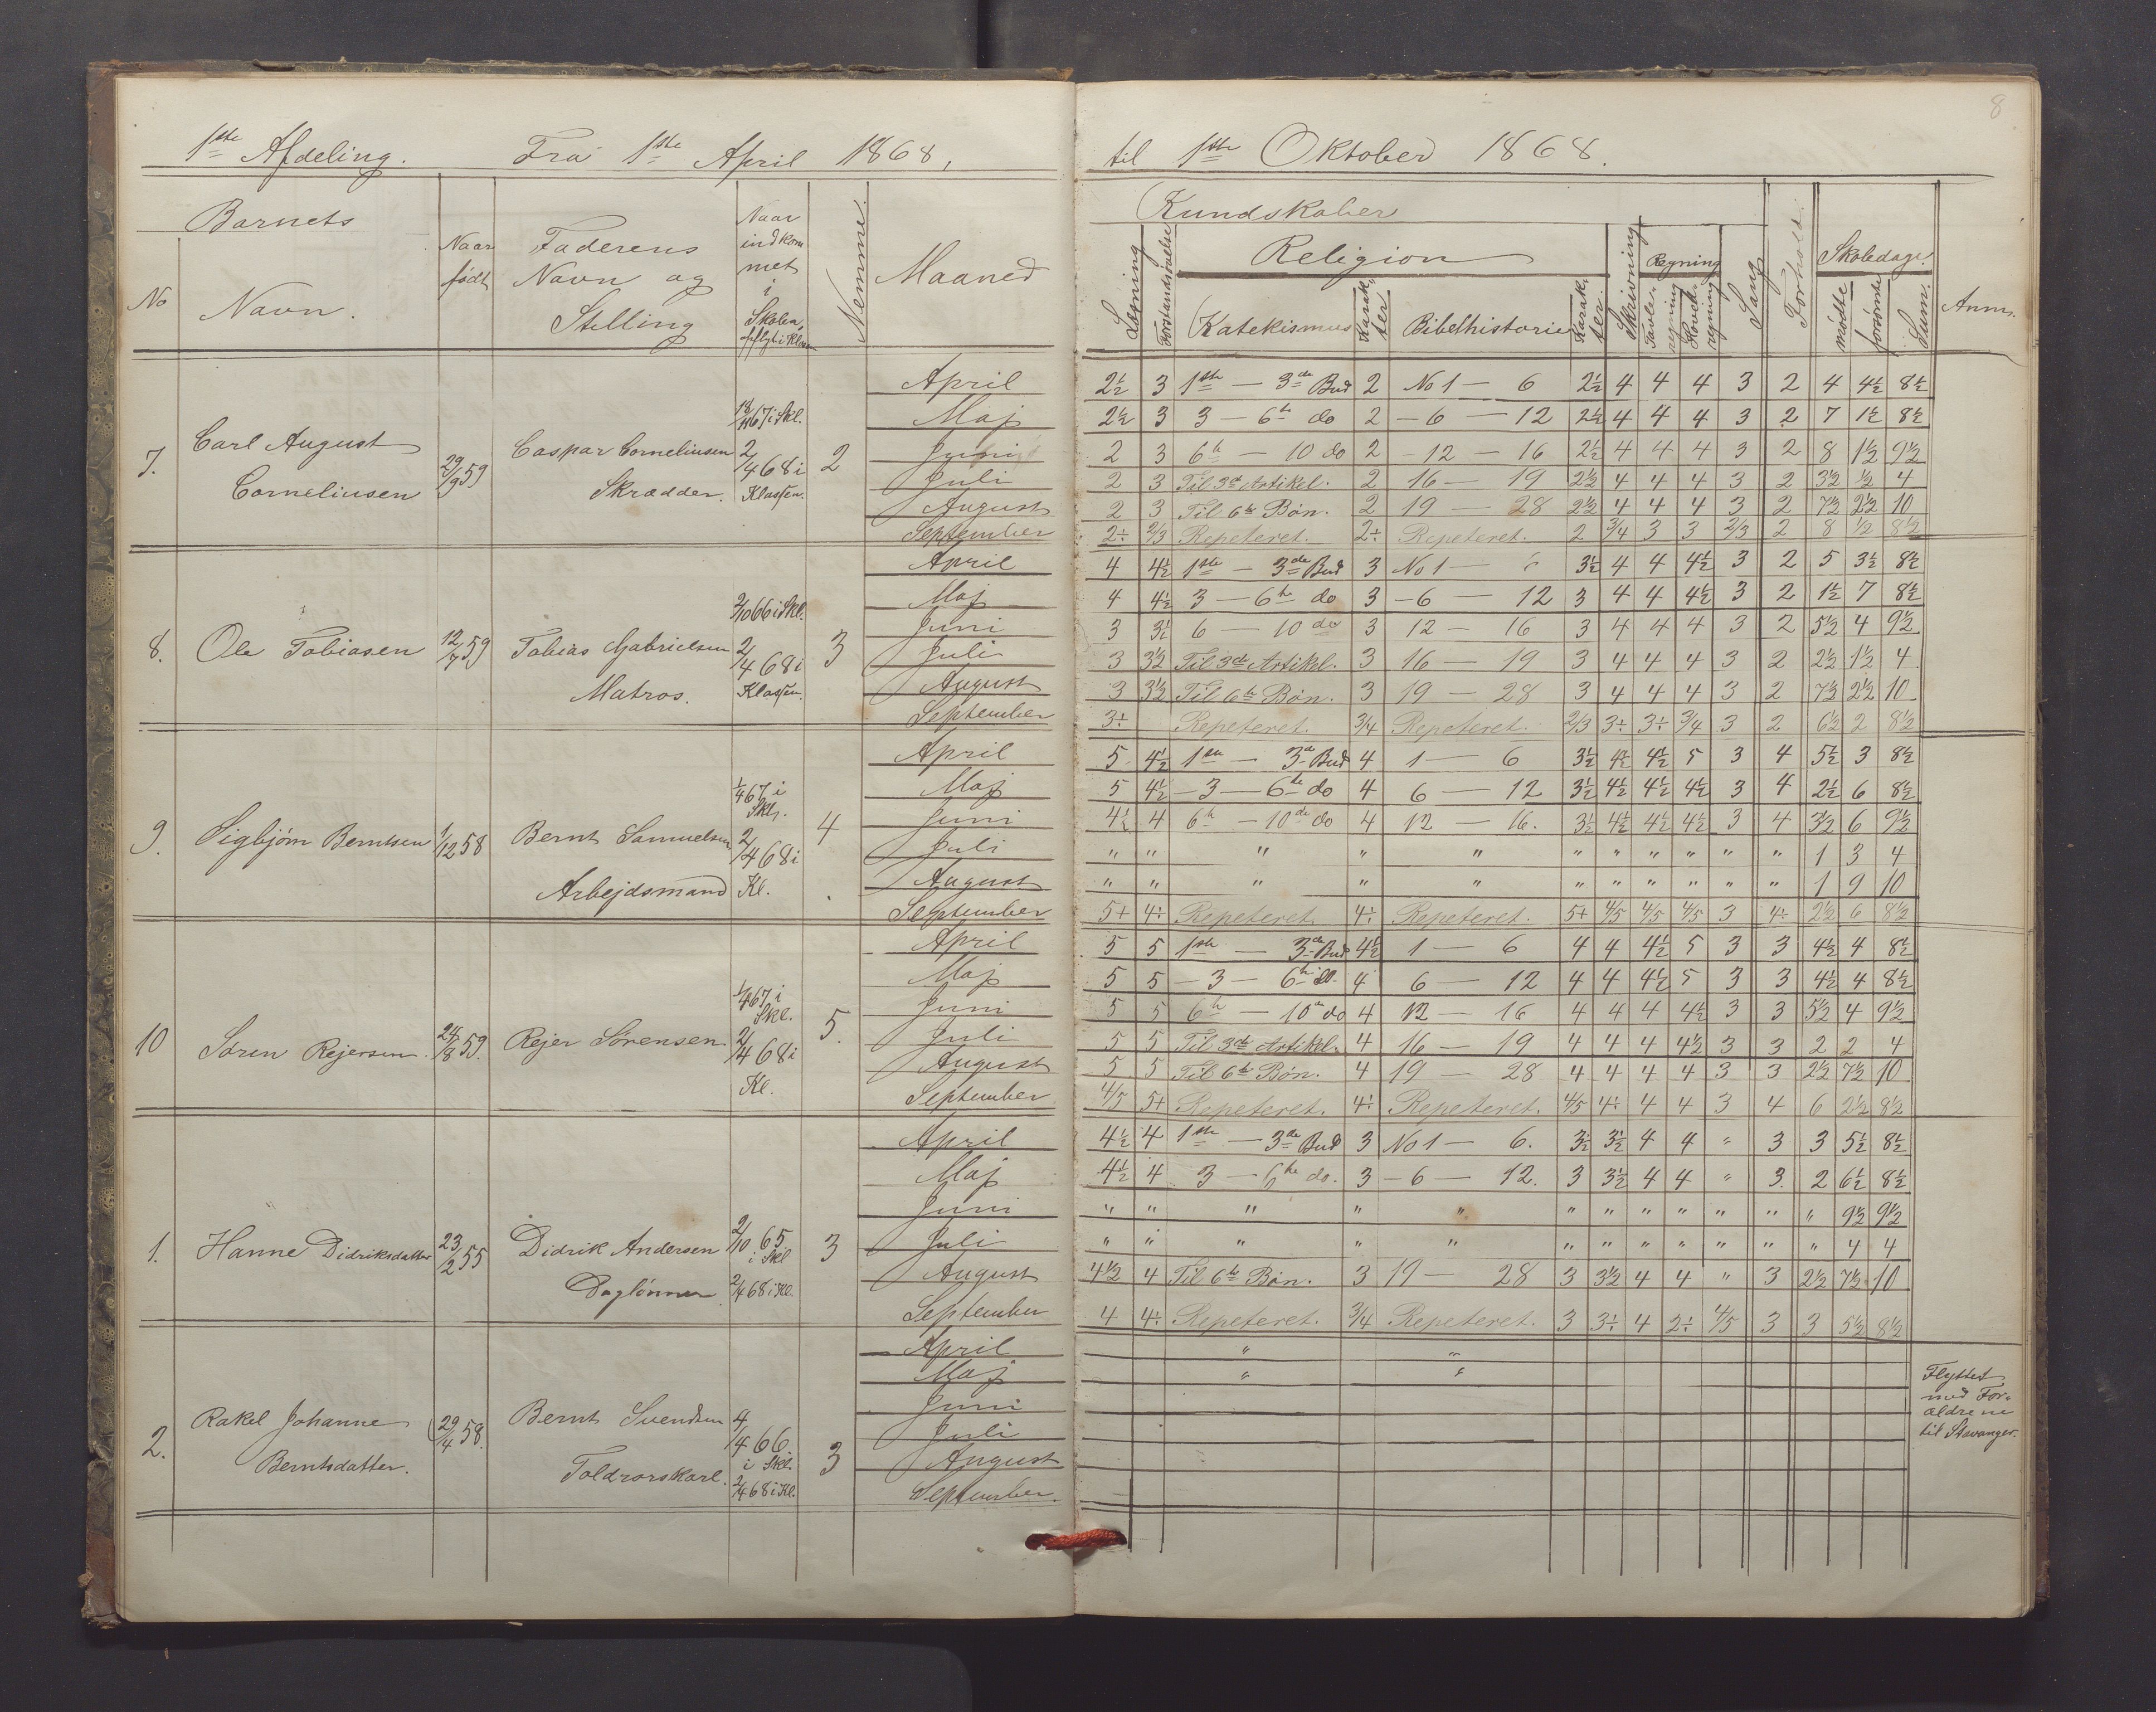 8
1ste Afdeling. Fra 1ste April 1868, til 1ste Oktober 1868.
Barnets
No Navn.
Naar født
Faderens Navn og Stilling
Naar indkommet i Skolen, opflyt i Klassen
Nemme.
Maaned
Kundskaber
Læsning
Forstandsøvelse
Religion
Katekismus Karakter. Bibelhistorie Karakter.
Skrivning
Regning
Tavleregning Hovedregning
Sang
Forhold.
Skoledage.
mødte forsømte Sum.
Anm.
7. Carl August Corneliusen 29/9 59 Caspar Corneliusen Skrædder. 67 i Skl. 2/4 68 i Klassen. 2
April 2½ 3 1ste — 3de Bud 2 No 1 — 6 2½ 4 4 4 3 2 4 4½ 8½
Maj 2½ 3 3 — 6te do 2 - 6 — 12 2½ 4 4 4 3 2 7 1½ 8½
Juni 2 3 6te — 10 do 2 - 12 — 16 2½ 4 4 4 3 2 8 1½ 9½
Juli 2 3 Til 3die Artikel. 2 16 — 19 2½ 4 4 4 3 2 3½ ½ 4
August 2 3 Til 6te Bøn. 2 19 — 28 2½ 4 4 4 3 2 7½ 2½ 10
September 2÷ 2/3 Repeteret. 2÷ Repeteret. 2 3/4 3 3 2/3 2 8 ½ 8½
8. Ole Tobiasen 12/7 59 Tobias Gabrielsen Matros. 2/10 66 i Skl. 2/4 68 i Klassen. 3
April 4 4½ 1ste — 3de Bud 3 No 1 — 6 3½ 4 4 4½ 3 2 5 3½ 8½
Maj 4 4½ 3 — 6te do 3 - 6 — 12 3 4 4 4½ 3 2 1½ 7 8½
Juni 3 3½ 6 — 10 do 3 12 — 16 3 4 4 4 3 2 5½ 4 9½
Juli 3 3½ Til 3die Artikel. 3 16 — 19 3 4 4 4 3 2 2½ 1½ 4
August 3 3½ Til 6te Bøn. 3 19 — 28 3 4 4 4 3 2 7½ 2½ 10
September 3÷ Repeteret. 3/4 Repeteret. 2/3 3÷ 3÷ 3/4 3 2 6½ 2 8½
9. Sigbjørn Berntsen 1/12 58 Bernt Samuelsen Arbejdsmand 1/4 67 i Skl. 2/4 68 i Kl. 4
April 5 4½ 1ste — 3de Bud 4 1 — 6 3½ 4½ 4½ 5 3 4 5½ 3 8½
Maj 5 4½ - 3 — 6te do 4 6 — 12 3½ 4½ 4½ 4½ 3 4 2½ 6 8½
Juni 4½ 4 6te — 10de do 4 12 — 16. 3½ 4½ 4½ 4½ 3 4 3½ 6 9½
Juli " " " " " " " " " " " 1 3 4
August " " " " " " " " " " " 1 9 10
September 5+ 4÷ Repeteret. 4÷ Repeteret. 5+ 4/5 4/5 4/5 3 4÷ 2½ 6 8½
10 Søren Rejersen 24/8 59. Rejer Sørensen 1/4 67 i Skl. 2/4 68 i Kl. 5.
April 5 5 1ste — 3de Bud 4½ 1 — 6 4 4 4½ 5 3 3 4½ 4 8½
Maj 5 5 - 3 — 6te do. 4 6 — 12 4 4 4½ 5 3 3 4½ 4 8½
Juni 5 5 6te — 10de do 4 12 — 16 4 4 4 4½ 3 3 5½ 4 9½
Juli 5 5 Til 3die Artikel. 4 16 — 19 4 4 4 4½ 3 3 2 2 4
August 5 5 Til 6te Bøn. 4 19 — 28 4 4 4 4 3 3 2½ 7½ 10
September 4/5 5+ Repeteret. 4÷ Repeteret. 4/5 4÷ 4 4 3 4 6 2½ 8½
1. Hanne Didriksdatter 23/2 55 Didrik Andersen Daglønner 2/10 65 i Skl 2/4 68 i Kl. 3
April 4½ 4 1ste — 3de Bud 3 No 1 — 6. 3½ 3½ 4 4 " 3 3 5½ 8½
Maj 4½ 4 3 — 6te do. 3 - 6 — 12. 3 3½ 4 4 " 3. 2 6½ 8½
Juni " " " " " " " " " " " " 9½ 9½
Juli " " " " " " " " " " " " 4 4
August 4½ 4 Til 6te Bøn. 3 19 — 28 3 3½ 4 4 " 3 2½ 7½ 10
September 4 4÷ Repeteret. 3/4 Repeteret. 3 3÷ 4 2÷ 4/5 3 3 5½ 8½
2. Rakel Johanne Berntsdatter. 29/4 58. Bernt Svendsen Toldrorskarl. 4/4 66. i Skl. 2/4 68 i Kl. 3
April " "
Maj " "
Juni
Juli
August
September.
Flyttet
med For-
ældrene
til Stavanger.